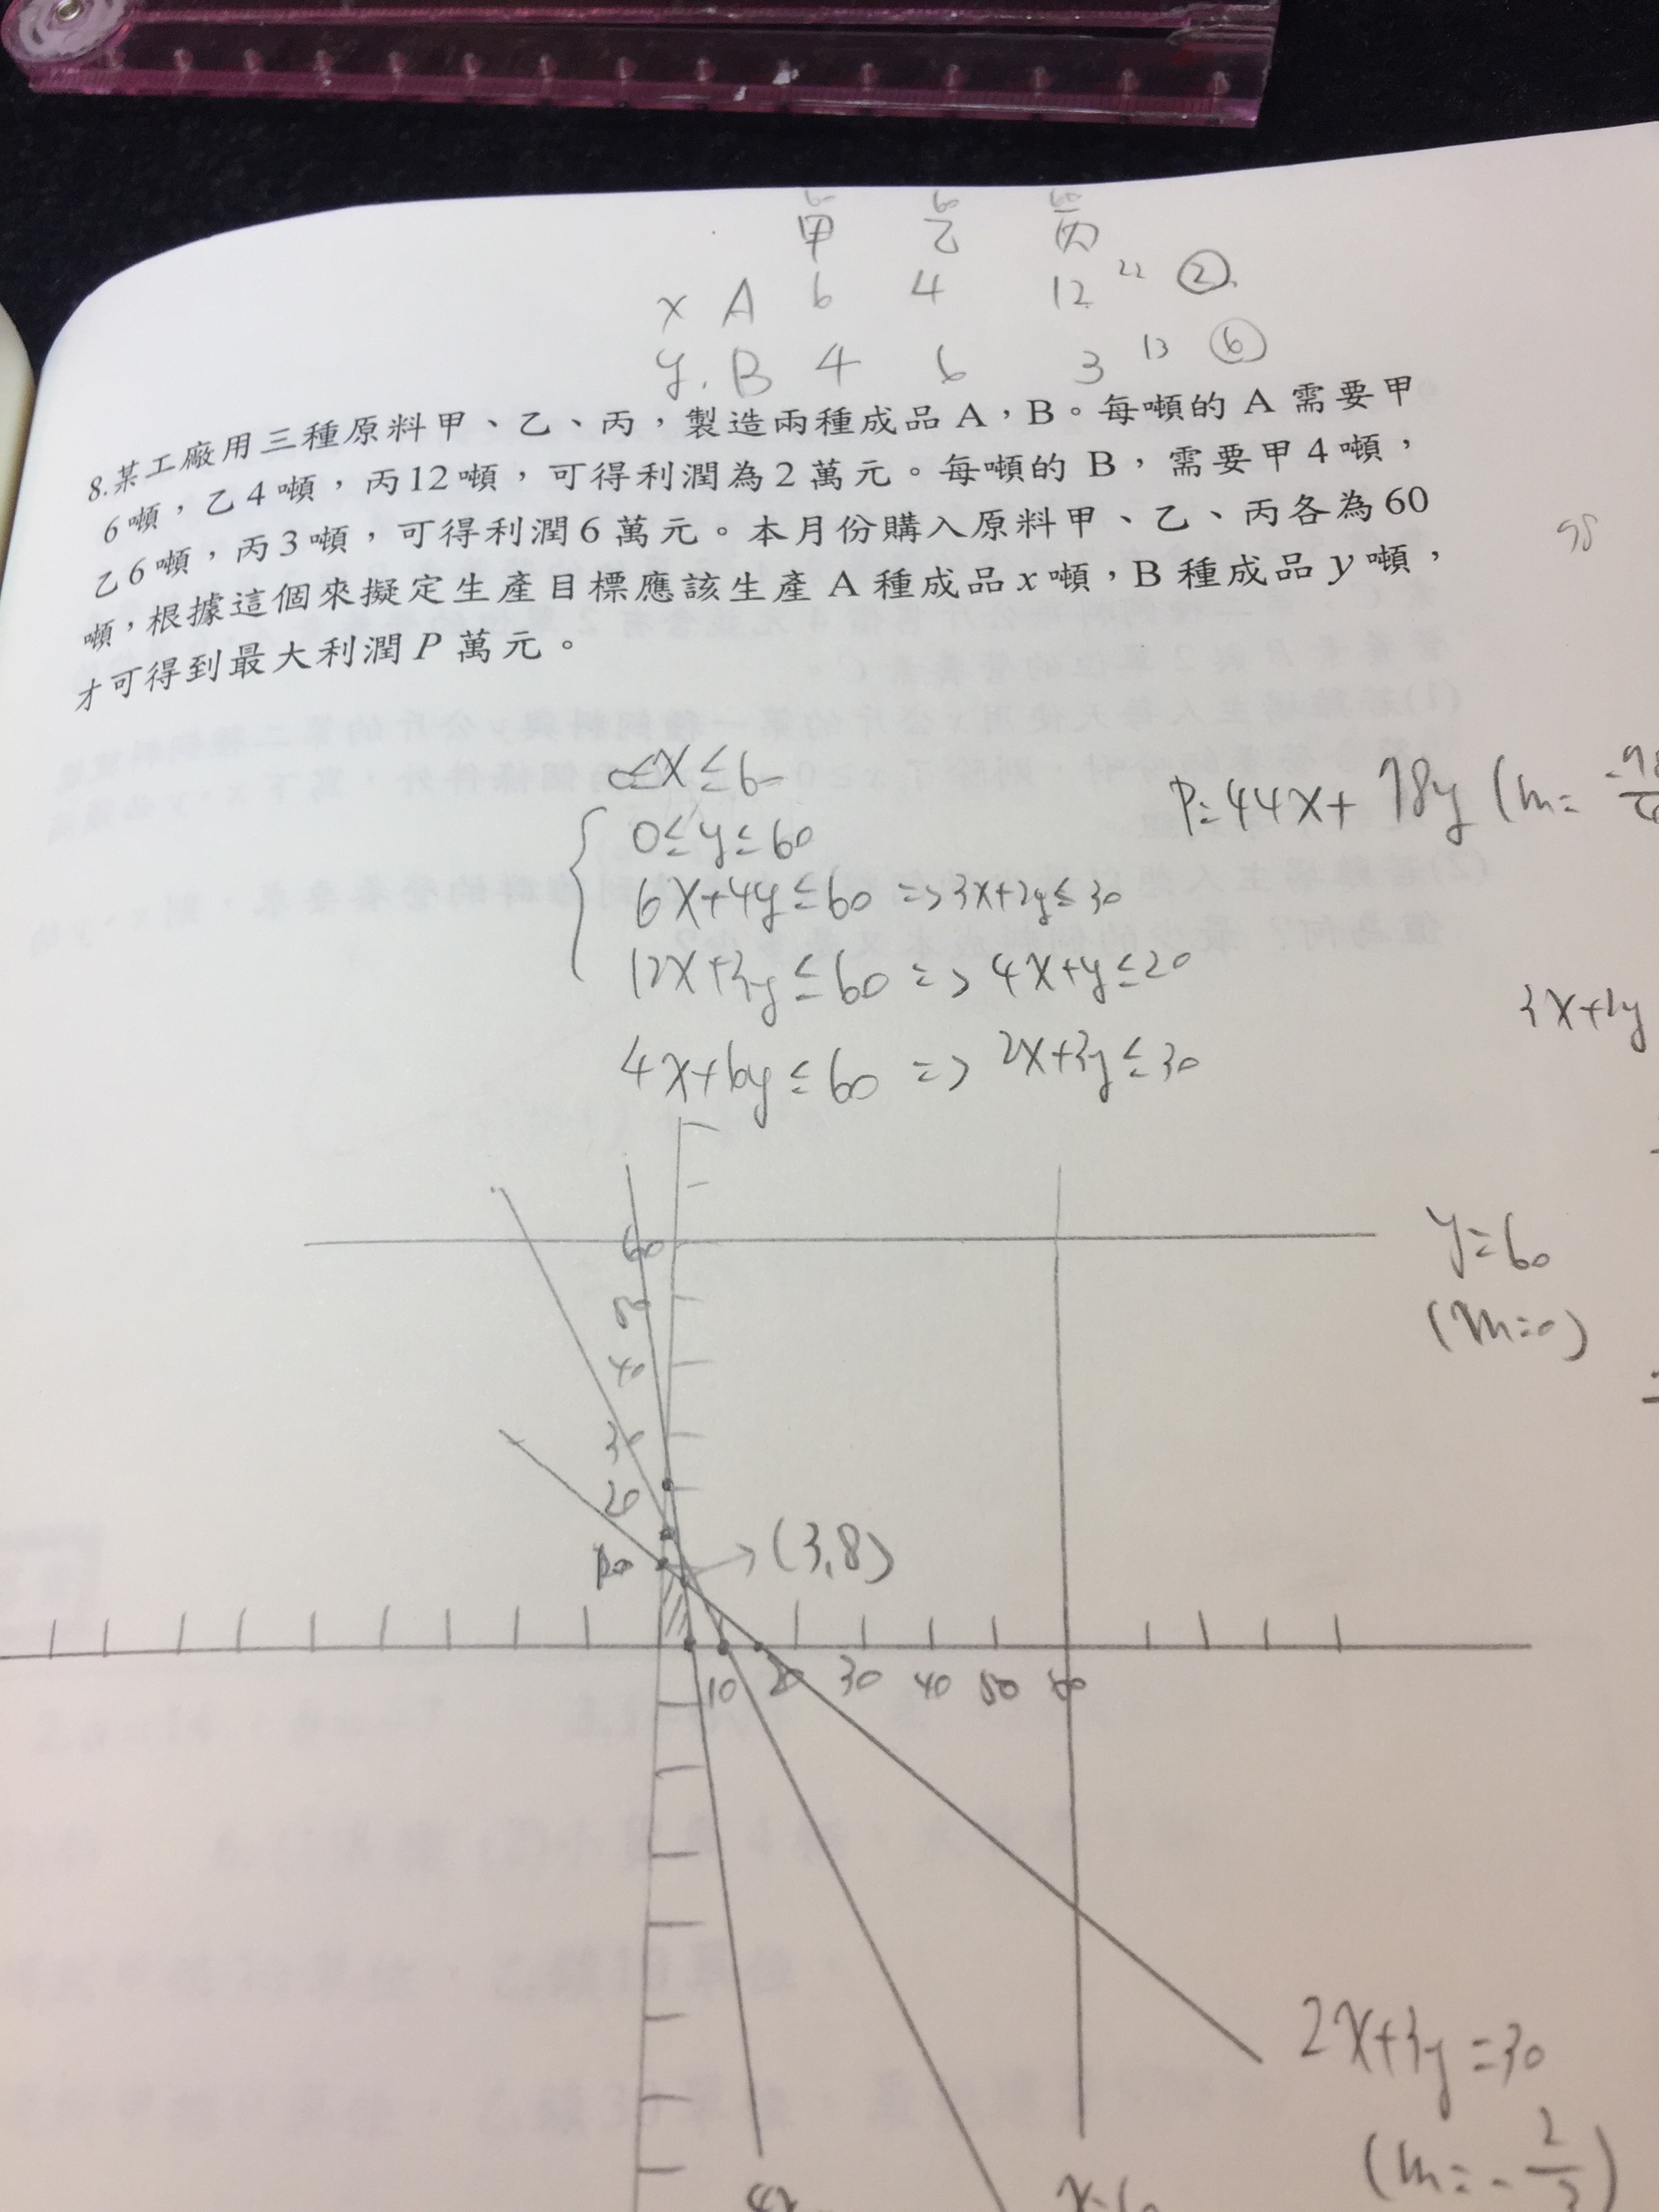 甲 乙 丙
x A 6 4 12 22 ②
y. B 4 6 3 13 ⑥
8.某工廠用三種原料甲、乙、丙，製造兩種成品A，B。每噸的 A 需要甲
6噸，乙4噸，丙12噸，可得利潤為2萬元。每噸的 B，需要甲4噸，
乙6噸，丙3噸，可得利潤6萬元。本月份購入原料甲、乙、丙各為60
噸，根據這個來擬定生產目標應該生產A種成品x噸，B種成品y噸，
才可得到最大利潤P萬元。
0≤x≤60
0≤y≤60
P=44x+78y (m=
6x+4y≤60 => 3x+2y≤30
12x+3y≤60 => 4x+y≤20
3x+2y
4x+6y≤60 => 2x+3y≤30
60
y=60
50
(m=0)
40
30
20
(3,8)
10
10 20 30 40 50 60
2x+3y=30
(m=-2/3)
4x